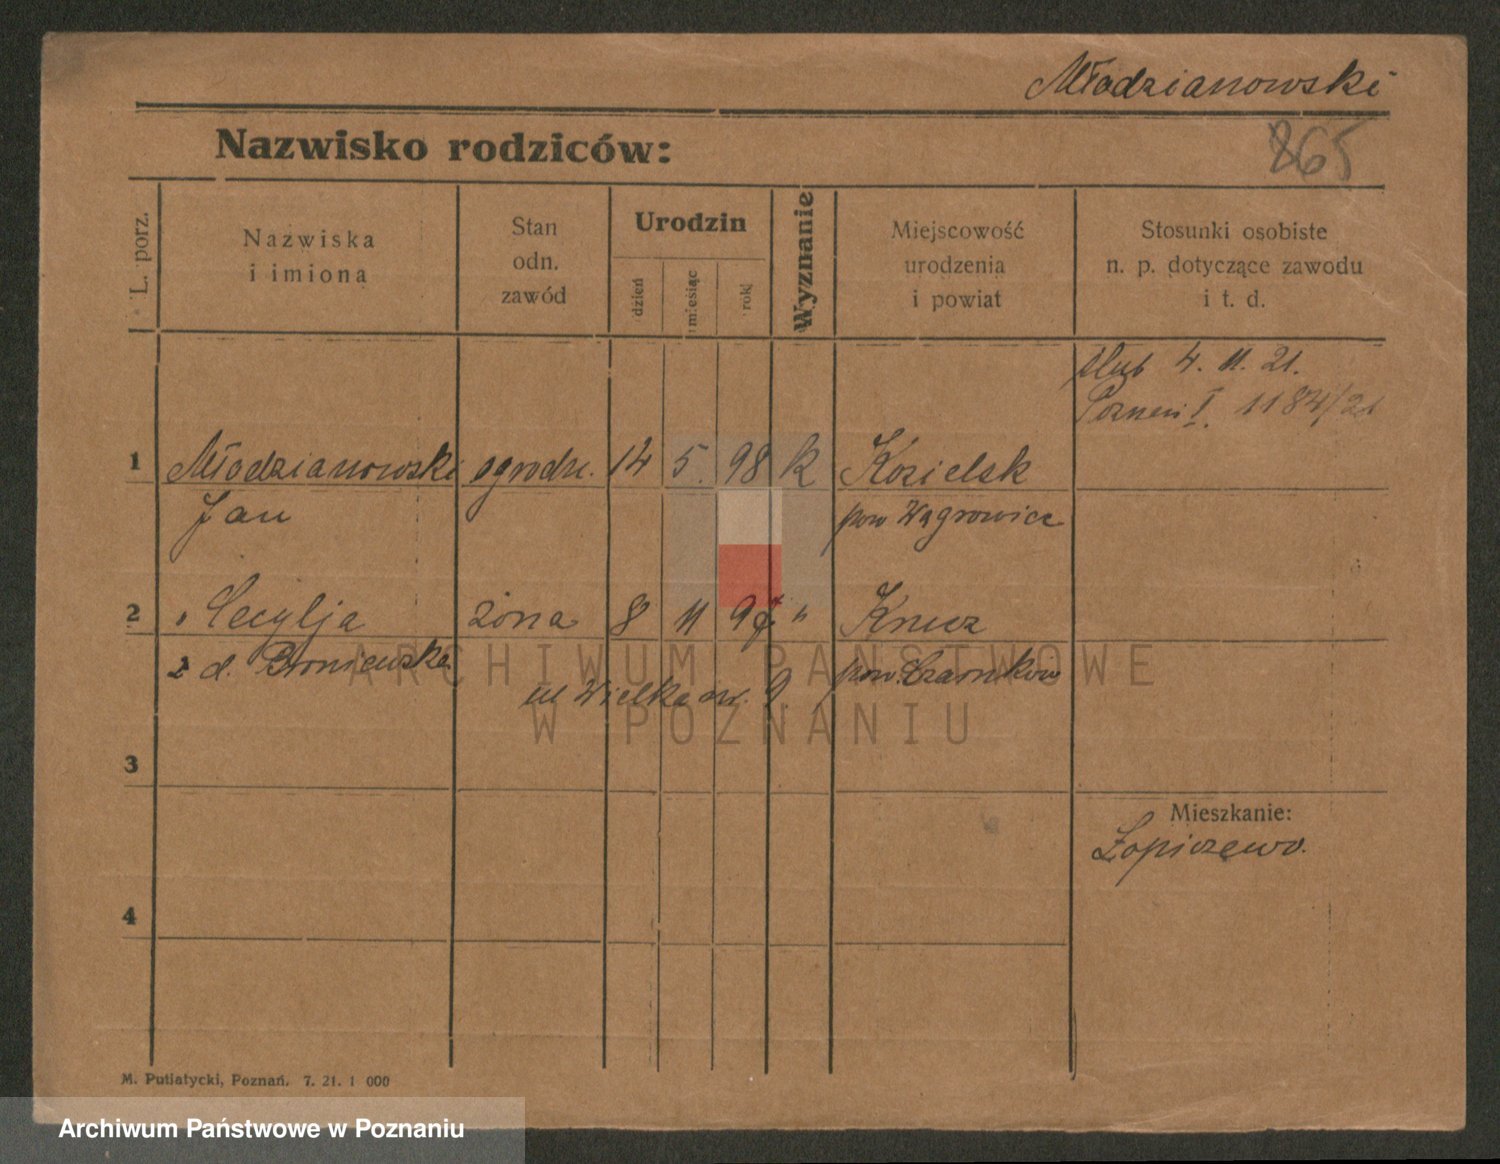 Młodzianowski
865
Nazwisko rodziców:
L. porz.
Nazwiska
i imiona
Stan
odn.
zawód
Urodzin
dzień
miesiąc
rok
Wyznanie
Miejscowość
urodzenia
i powiat
Stosunki osobiste
n. p. dotyczące zawodu
i t. d.
ślub 4. 11. 21.
Poznań I. 1184/21
1 Młodzianowski ogrodn. 14 5. 98 k Kozielsk
Jan pow Wągrowiec
2 " Cecylja żona 8 11 "
z d. Broniewska pow. Czarnków
ul Wielka nr. 9.
ARCHIWUM PAŃSTWOWE
W POZNANIU
3
Mieszkanie:
4
M. Putiatycki, Poznań. 7. 21. 1 000
Archiwum Państwowe w Poznaniu